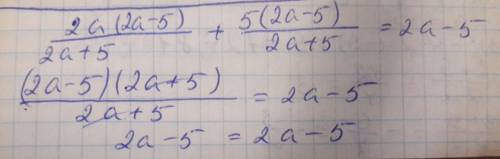 2a(2a-5)/2a+5 + 5(2a-5)/2a+5 = 2a-5
(2a-5)(2a+5)/2a+5 = 2a-5
2a-5 = 2a-5